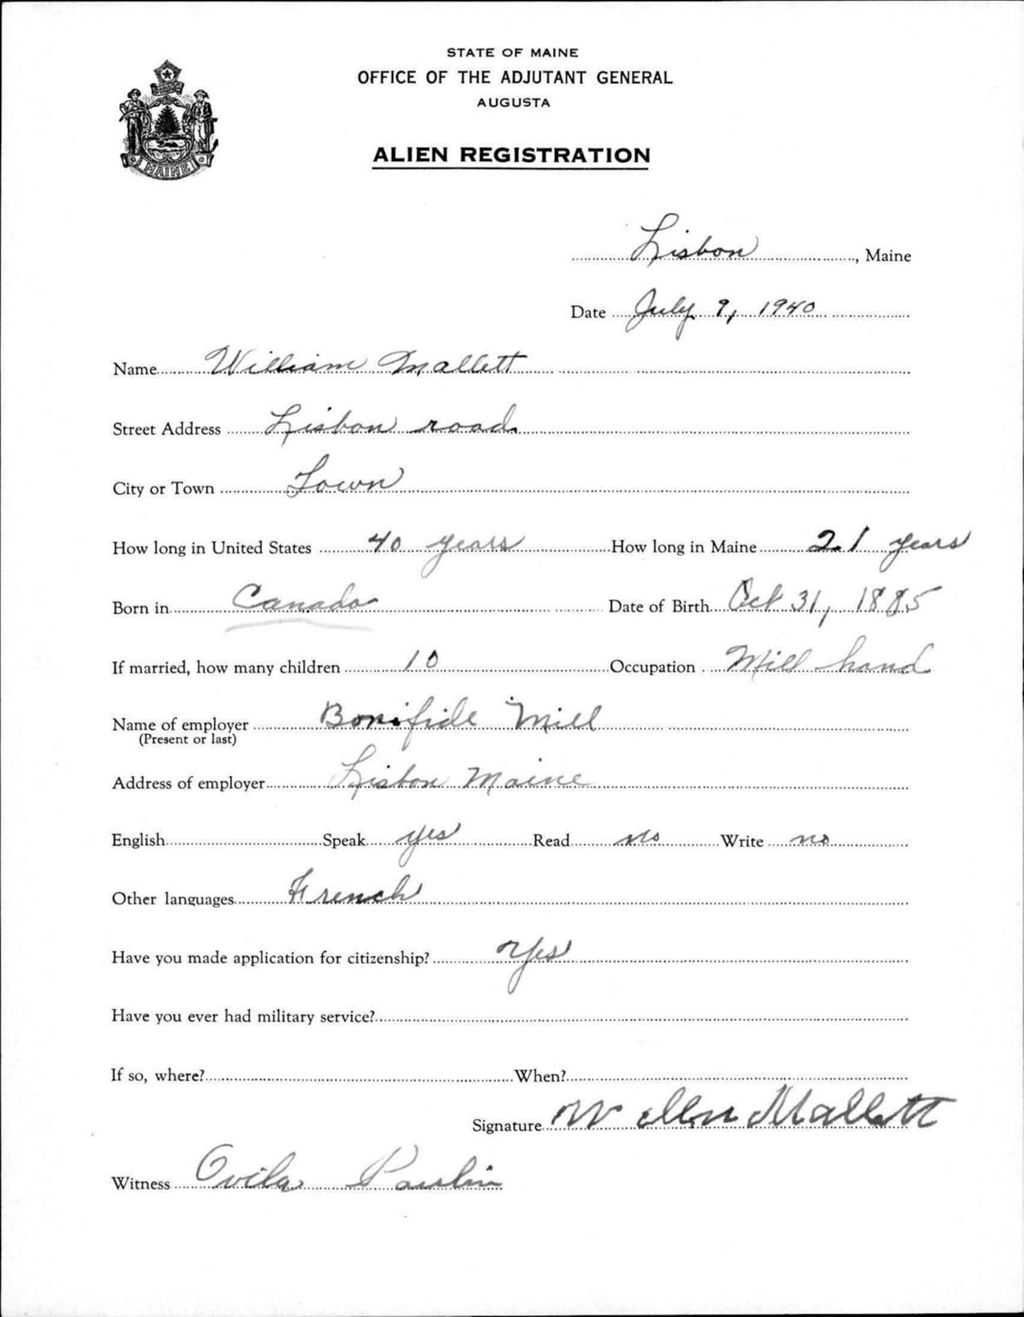 STATE OF MAINE
OFFICE OF THE ADJUTANT GENERAL
AUGUSTA
ALIEN REGISTRATION
MAINE
Lisbon, Maine
Date July 9, 1940
Name William Mallett
Street Address Lisbon road
City or Town Town
How long in United States 40 years How long in Maine 21 years
Born in Canada Date of Birth Oct 31, 1885
If married, how many children 10 Occupation Mill hand
Name of employer Bonifide Mill
(Present or last)
Address of employer Lisbon Maine
English Speak yes Read no Write no
Other languages French
Have you made application for citizenship? Yes
Have you ever had military service?
If so, where? When?
Signature Mallett
Witness Ovila Paulin